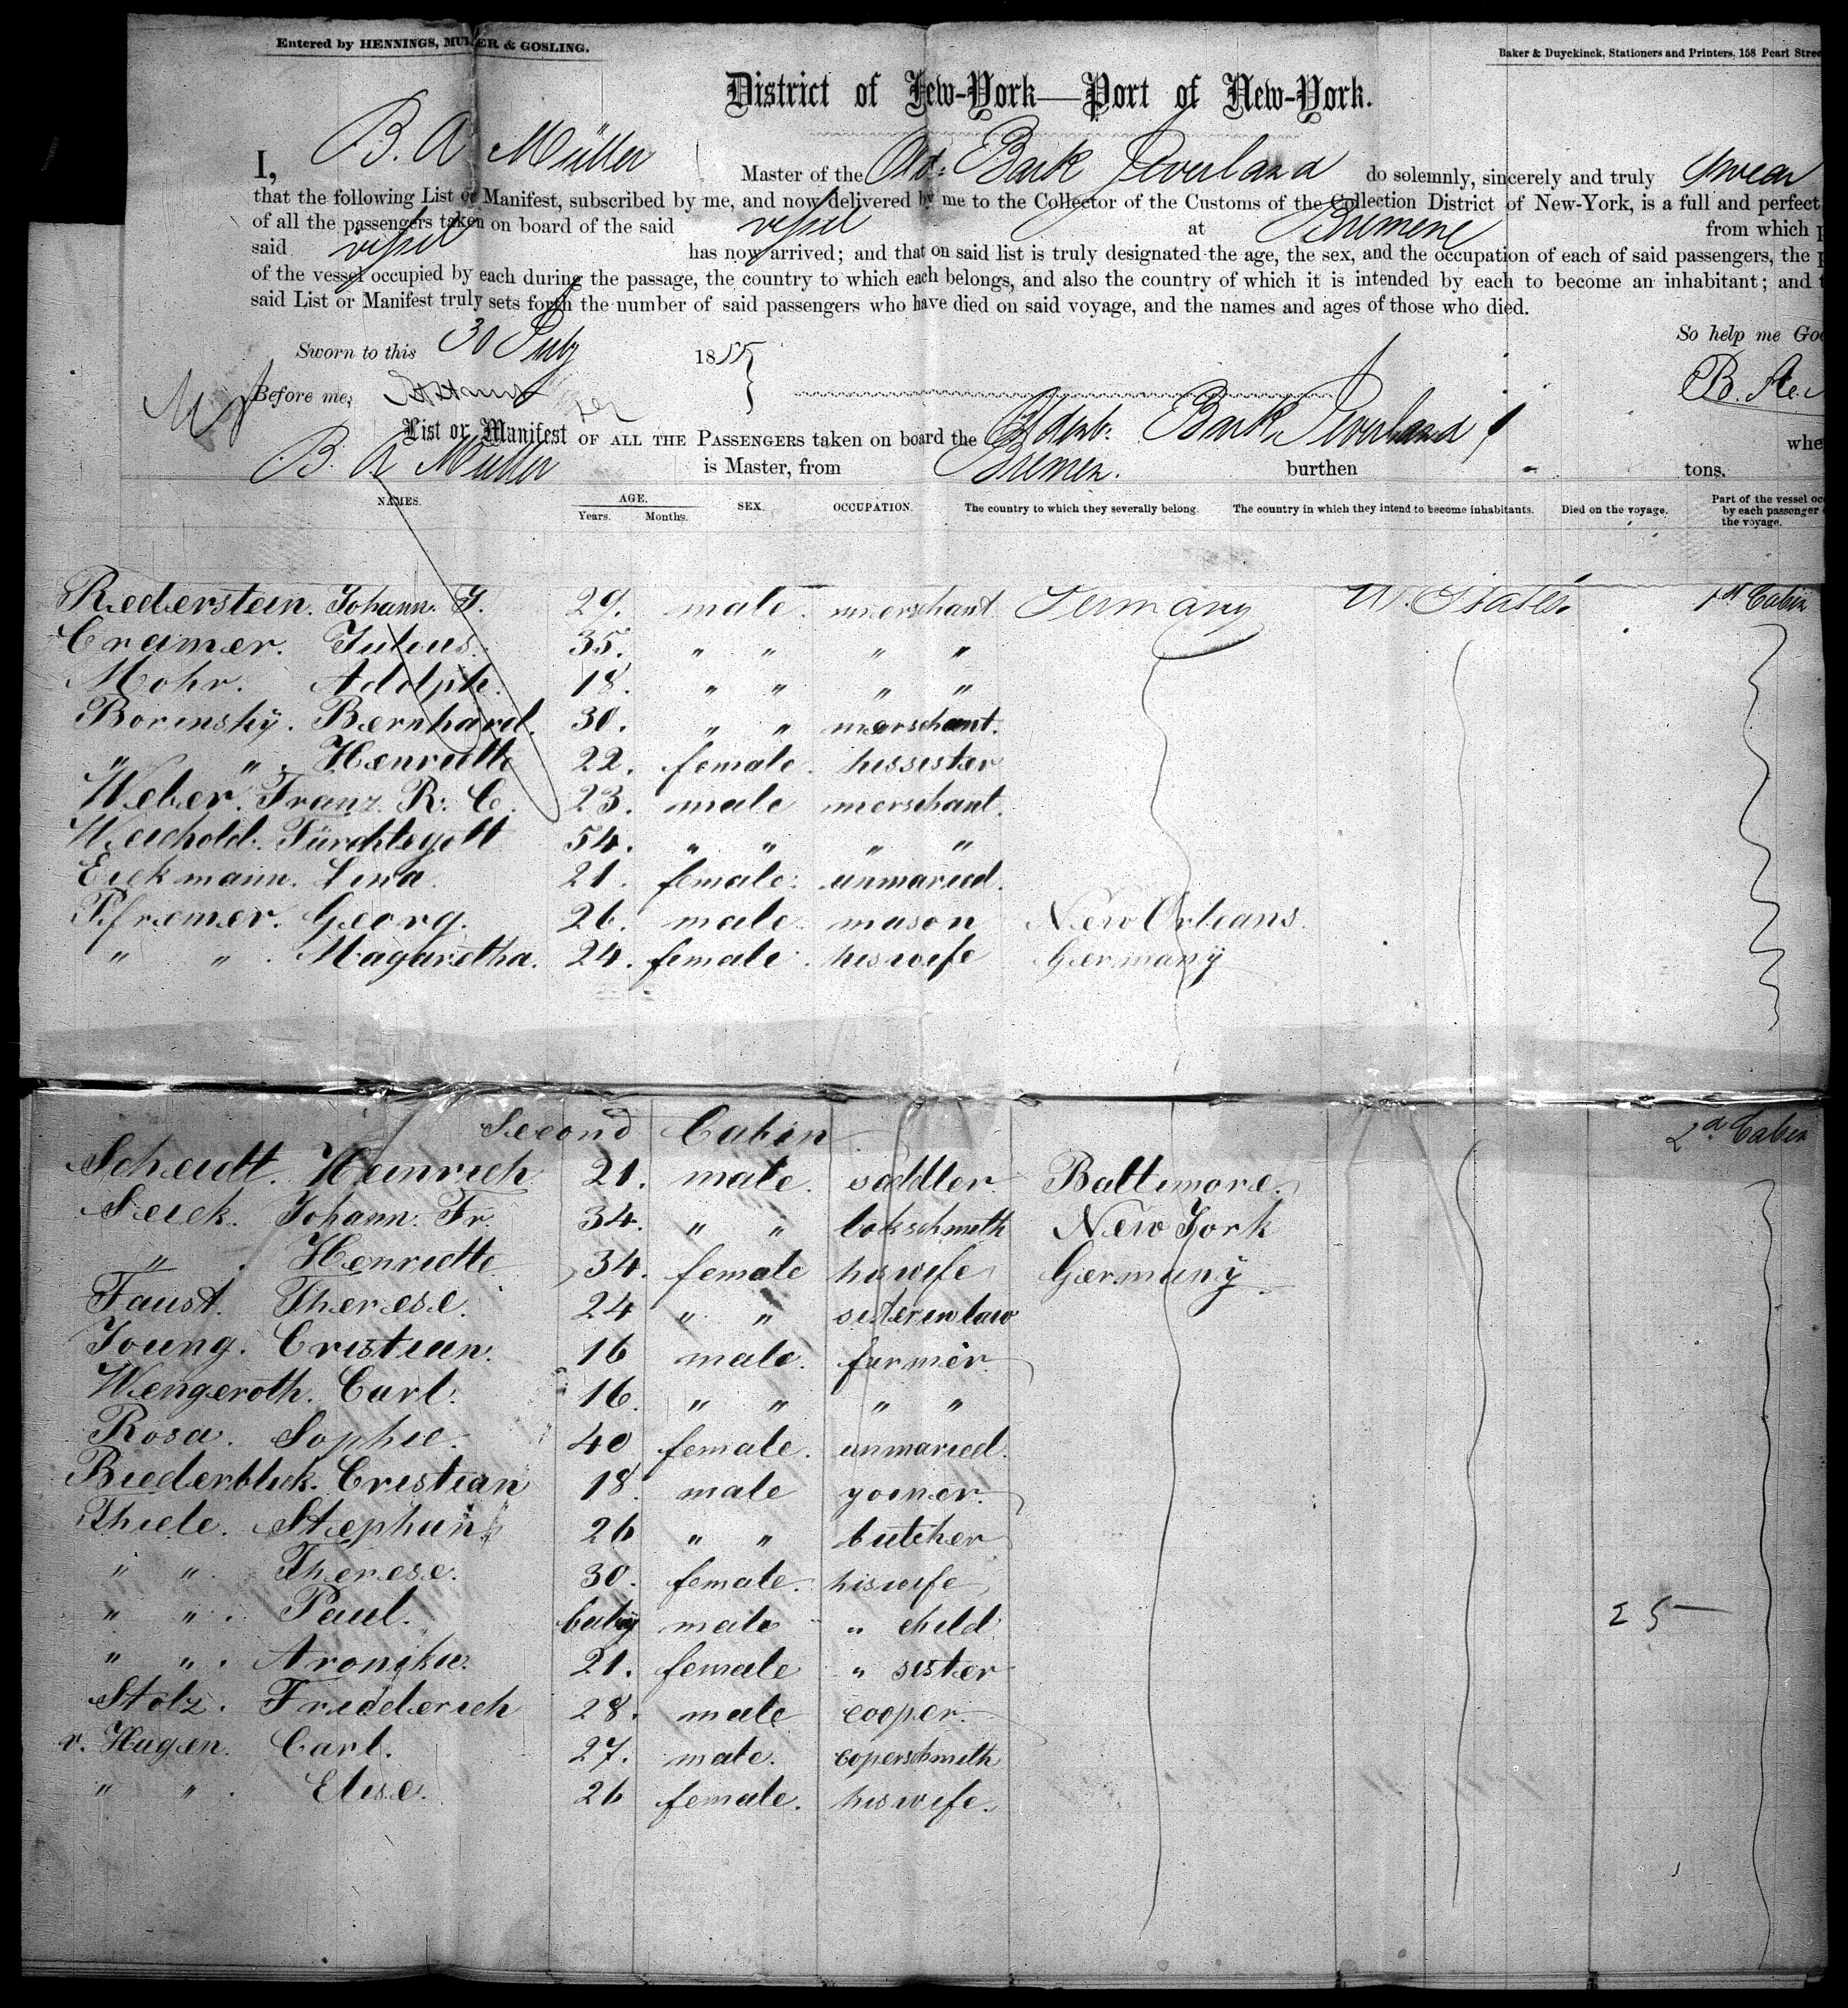 Entered by HENNINGS, MULLER & GOSLING.
Baker & Duyckinck, Stationers and Printers, 158 Pearl Stree
District of New-York—Port of New-York.
I, B. A Müller Master of the Old. Bark Jeverland do solemnly, sincerely and truly swear
that the following List or Manifest, subscribed by me, and now delivered by me to the Collector of the Customs of the Collection District of New-York, is a full and perfect
of all the passengers taken on board of the said vessel at Bremene from which p
said vessel has now arrived; and that on said list is truly designated the age, the sex, and the occupation of each of said passengers, the p
of the vessel occupied by each during the passage, the country to which each belongs, and also the country of which it is intended by each to become an inhabitant; and t
said List or Manifest truly sets forth the number of said passengers who have died on said voyage, and the names and ages of those who died.
So help me God
Sworn to this 30 July 1855
Before me,
List or Manifest OF ALL THE PASSENGERS taken on board the Oldenb. Bark Jeverland whe
B. A Müller is Master, from Bremen. burthen tons.
NAMES. AGE. SEX. OCCUPATION. The country to which they severally belong. The country in which they intend to become inhabitants. Died on the voyage. Part of the vessel occ
Years. Months. by each passenger
the voyage.
Rederstein. Johann. F. 29. male. merschant Germany U. States. 1st Cabin
Cramer. Julius. 35. " " " "
Mohr. Adolph. 18. " " " "
Borinsky. Bernhard. 30. " " merschant.
" " Henriette 22. female. his sister
Weber. Franz. R. C. 23. male merschant.
Weichold. Fürchtegott 54. " " " "
Eickmann. Lina. 21. female. unmaried.
Pfremer. Georg. 26. male. mason New Orleans.
" " Magaretha. 24. female. his wife Germany
Second Cabin 2d Cabin
Scheidt. Heinrich 21. male. saddler Baltimore.
Seick. Johann. Fr. 34. " " lokschmith New York
" Henriette 34. female his wife Germany
Faust. Therese. 24 " " sister in law
Young. Cristian. 16 male. farmer.
Wengeroth. Carl. 16. " " " "
Rosa. Sophie. 40 female. unmaried.
Biederblick. Cristian 18. male yoiner.
Thiele. Stephan. 26 " " butcher
" " Therese. 30. female. his wife
" " Paul. baby male " child
" " Aronika. 21. female " sister 25
Stolz. Friederich 28. male cooper.
v. Hagen. Carl. 27. male. coperschmith
" " Elise. 26 female. his wife.